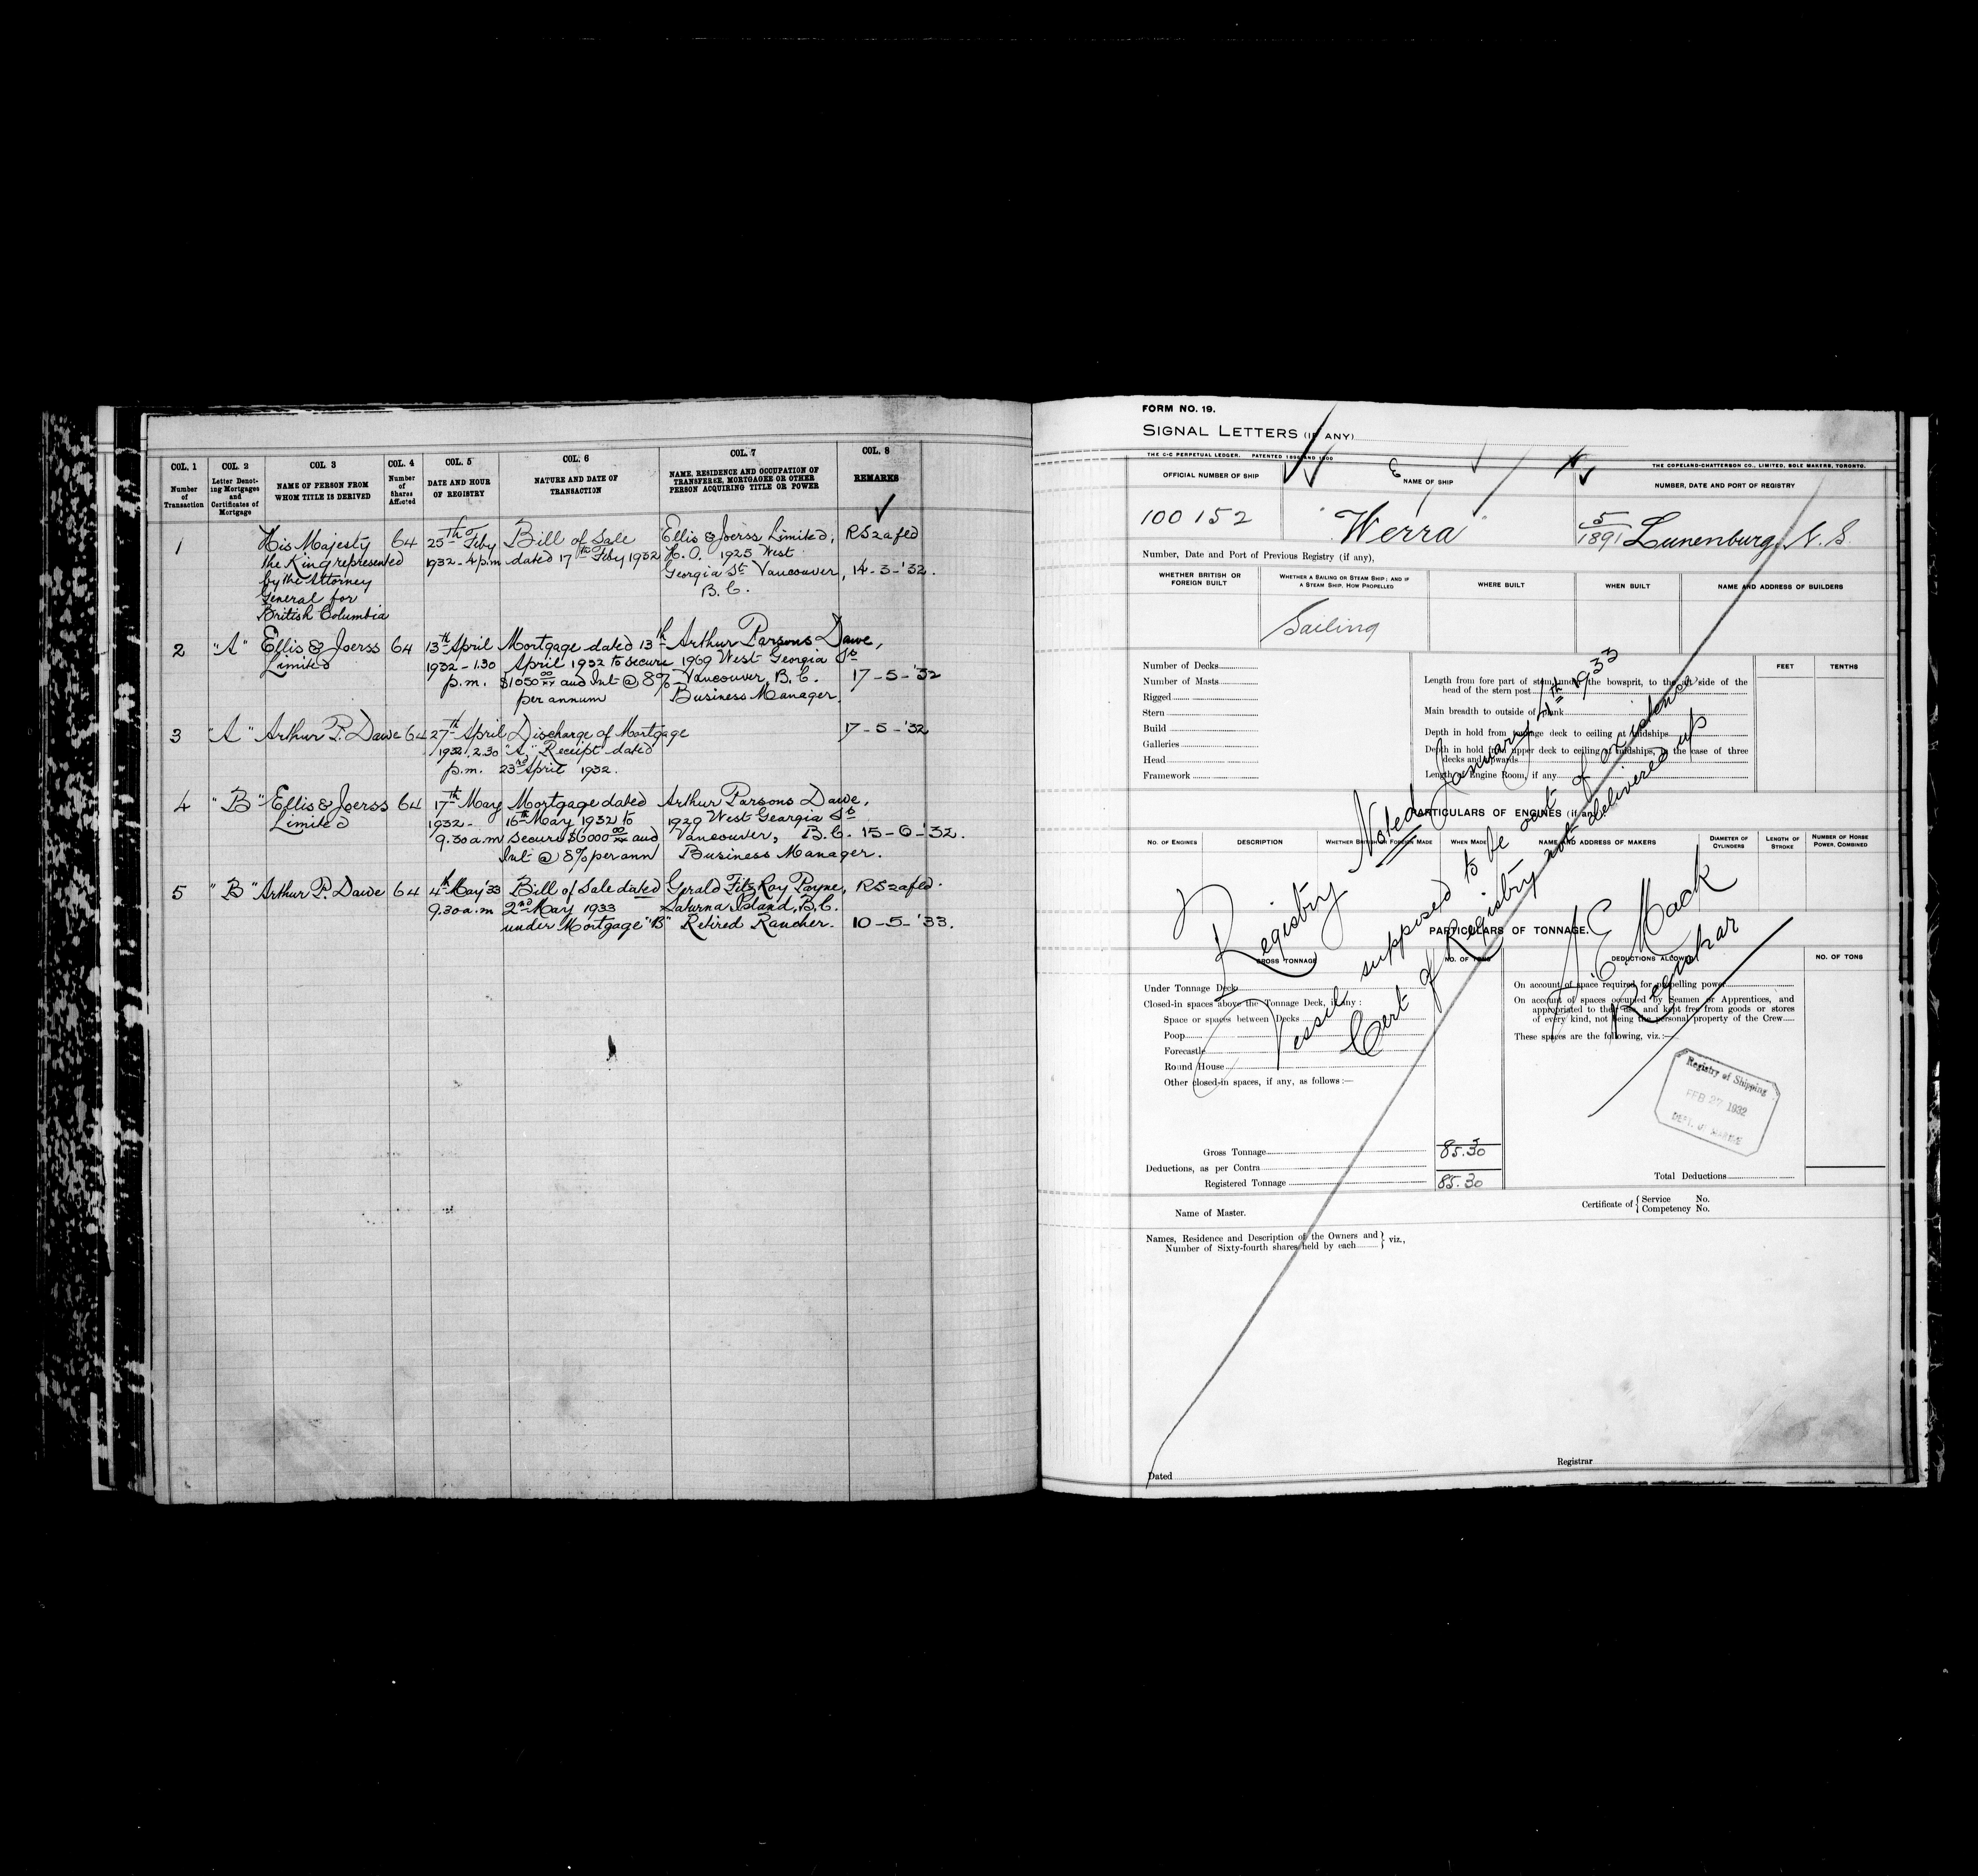 COL. 1 COL. 2 COL. 3 COL. 4 COL. 5 COL. 6 COL. 7 COL. 8
Number of Transaction
Letter Denoting Mortgages and Certificates of Mortgage
NAME OF PERSON FROM WHOM TITLE IS DERIVED
Number of Shares Affected
DATE AND HOUR OF REGISTRY
NATURE AND DATE OF TRANSACTION
NAME, RESIDENCE AND OCCUPATION OF TRANSFEREE, MORTGAGEE OR OTHER PERSON ACQUIRING TITLE OR POWER
REMARKS
1 His Majesty 64 25th Feby Bill of Sale Ellis & Joerss Limited, RS2afld
the King represented 1932 - 4 p.m. dated 17th Feby 1932 H.O. 1925 West
by the Attorney Georgia St. Vancouver, 14-3-'32.
General for B.C.
British Columbia
2 "A" Ellis & Joerss 64 13th April Mortgage dated 13th Arthur Parsons Dawe,
Limited 1932 - 1.30 April 1932 to secure 1969 West Georgia St.
p.m. $1050 00/xx and Int @ 8% Vancouver, B.C. 17-5-'32
per annum Business Manager.
3 "A" Arthur P. Dawe 64 27th April Discharge of Mortgage 17-5-'32
1932. 2.30 "A" Receipt dated
p.m. 23rd April 1932.
4 "B" Ellis & Joerss 64 17th May Mortgage dated Arthur Parsons Dawe,
Limited 1932 - 16th May 1932 to 1929 West Georgia St.
9.30 a.m. secure $6000 00/xx and Vancouver, B.C. 15-6-'32.
Int @ 8% per ann Business Manager.
5 "B" Arthur P. Dawe 64 4th May '33 Bill of Sale dated Gerald Fitz Roy Payne, RS2afld.
9.30 a.m 2nd May 1933 Saturna Island, B.C.
under Mortgage "B" Retired Rancher. 10-5-'33.
FORM NO. 19.
SIGNAL LETTERS (IF ANY)
THE C-C PERPETUAL LEDGER. PATENTED
THE COPELAND-CHATTERSON CO., LIMITED, SOLE MAKERS, TORONTO.
OFFICIAL NUMBER OF SHIP NAME OF SHIP NUMBER, DATE AND PORT OF REGISTRY
100152 "Werra" 5/1891 Lunenburg, N.S.
Number, Date and Port of Previous Registry (if any),
WHETHER BRITISH OR FOREIGN BUILT
WHETHER A SAILING OR STEAM SHIP; AND IF A STEAM SHIP, HOW PROPELLED
WHERE BUILT
WHEN BUILT
NAME AND ADDRESS OF BUILDERS
Sailing
FEET TENTHS
Number of Decks
Number of Masts
Rigged
Stern
Build
Galleries
Head
Framework
Length from fore part of stem, under the bowsprit, to the aft side of the
head of the stern post
Main breadth to outside of plank
Depth in hold from tonnage deck to ceiling at midships
Depth in hold from upper deck to ceiling at midships, in the case of three
decks and upwards
Length of Engine Room, if any
PARTICULARS OF ENGINES (if any).
NO. OF ENGINES
DESCRIPTION
WHETHER BRITISH OR FOREIGN MADE
WHEN MADE
NAME AND ADDRESS OF MAKERS
DIAMETER OF CYLINDERS
LENGTH OF STROKE
NUMBER OF HORSE POWER, COMBINED
PARTICULARS OF TONNAGE.
GROSS TONNAGE NO. OF TONS DEDUCTIONS ALLOWED NO. OF TONS
Under Tonnage Deck
Closed-in spaces above the Tonnage Deck, if any :
Space or spaces between Decks
Poop
Forecastle
Round House
Other closed-in spaces, if any, as follows :—
On account of space required for propelling power
On account of spaces occupied by Seamen or Apprentices, and
appropriated to their use, and kept free from goods or stores
of every kind, not being the personal property of the Crew
These spaces are the following, viz. :—
Registry Noted January 4th 1933
Vessel supposed to be out of existence
Cert of Registry not delivered up
Mack
Registrar
Registry of Shipping
FEB 27 1932
DEPT. of MARINE
Gross Tonnage 85.30
Deductions, as per Contra
Registered Tonnage 85.30
Total Deductions
Name of Master.
Certificate of { Service No.
Competency No.
Names, Residence and Description of the Owners and } viz.,
Number of Sixty-fourth shares held by each
Dated
Registrar